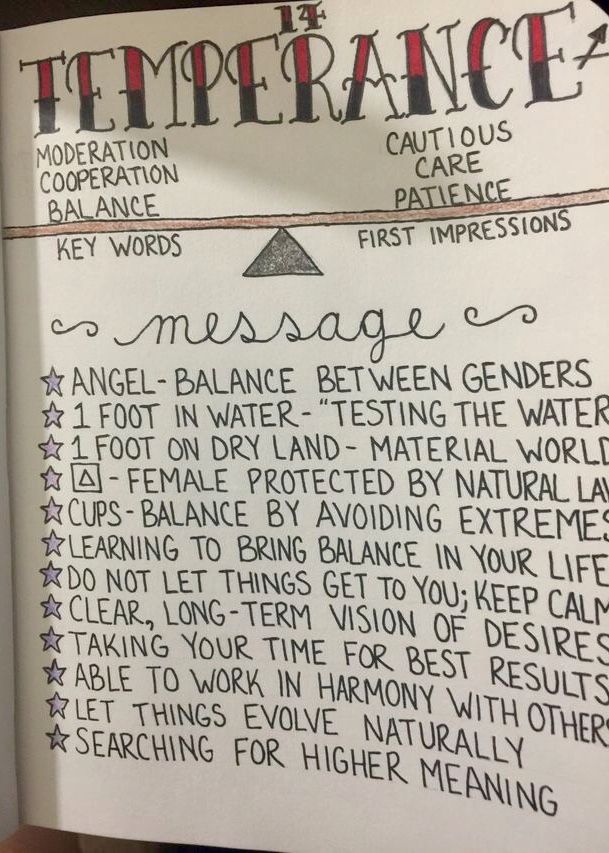 14
TEMPERANCE
MODERATION
COOPERATION
BALANCE
CAUTIOUS
CARE
PATIENCE
KEY WORDS
FIRST IMPRESSIONS
message
ANGEL - BALANCE BETWEEN GENDERS
1 FOOT IN WATER - "TESTING THE WATER
1 FOOT ON DRY LAND - MATERIAL WORLD
- FEMALE PROTECTED BY NATURAL LAW
CUPS - BALANCE BY AVOIDING EXTREMES
LEARNING TO BRING BALANCE IN YOUR LIFE
DO NOT LET THINGS GET TO YOU; KEEP CALM
CLEAR, LONG-TERM VISION OF DESIRES
TAKING YOUR TIME FOR BEST RESULTS
ABLE TO WORK IN HARMONY WITH OTHERS
LET THINGS EVOLVE NATURALLY
SEARCHING FOR HIGHER MEANING